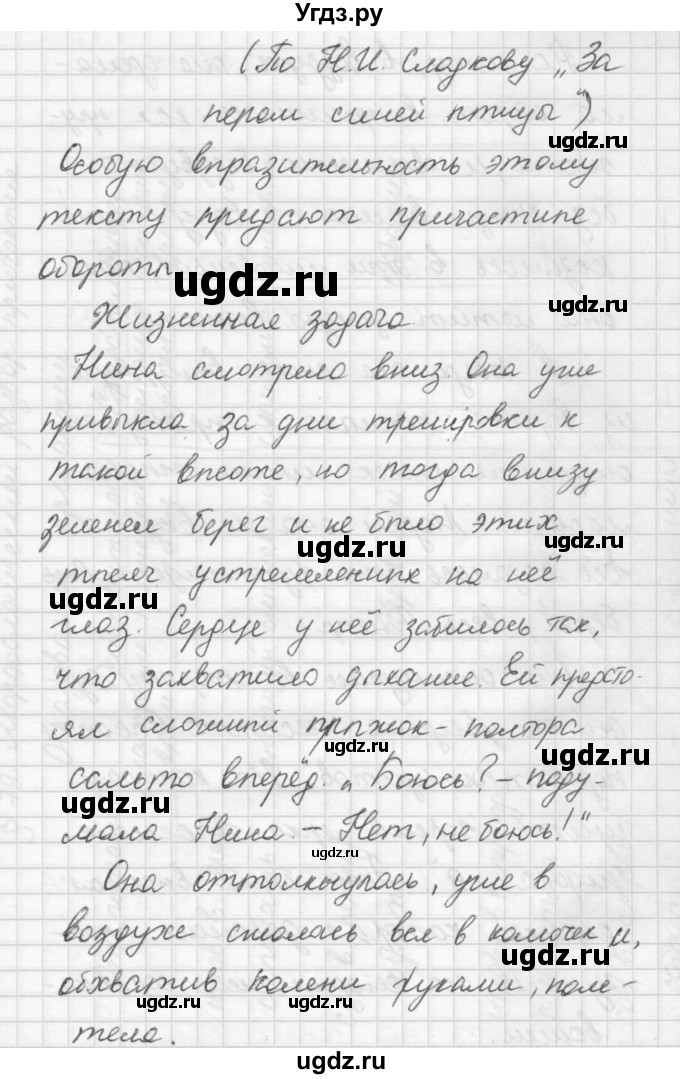 Угдз.ру
(По Н.И. Сладкову „За
пером синей птицы")
Особую впразительность этому
тексту придают причастипе
обороты
ugdz.ru
ugdz.ru
Жизненная задача
Нина смотрела вниз. Она уже
привыкла за дни тренировки к
такой впсоте, но тогда внизу
зеленел берег и не бпло этих
ugdz.ru
ugdz.ru
тпсяч устремленнпх на неё
ugdz.ru
глаз. Сердце у неё забилось так,
что захватило дыхание. Ей предсто-
ял сложнпй прпжок - полтора
ugdz.ru
ugdz.ru
сальто вперёд. „Боюсь? - поду-
ugdz.ru
мала Нина - Нет, не боюсь!"
ugdz.ru
Она оттолкнулась, уже в
воздухе сжалась вся в комочек и,
ugdz.ru
обхватив колени руками, поле-
ugdz.ru
ugdz.ru
тела.
ugdz.ru